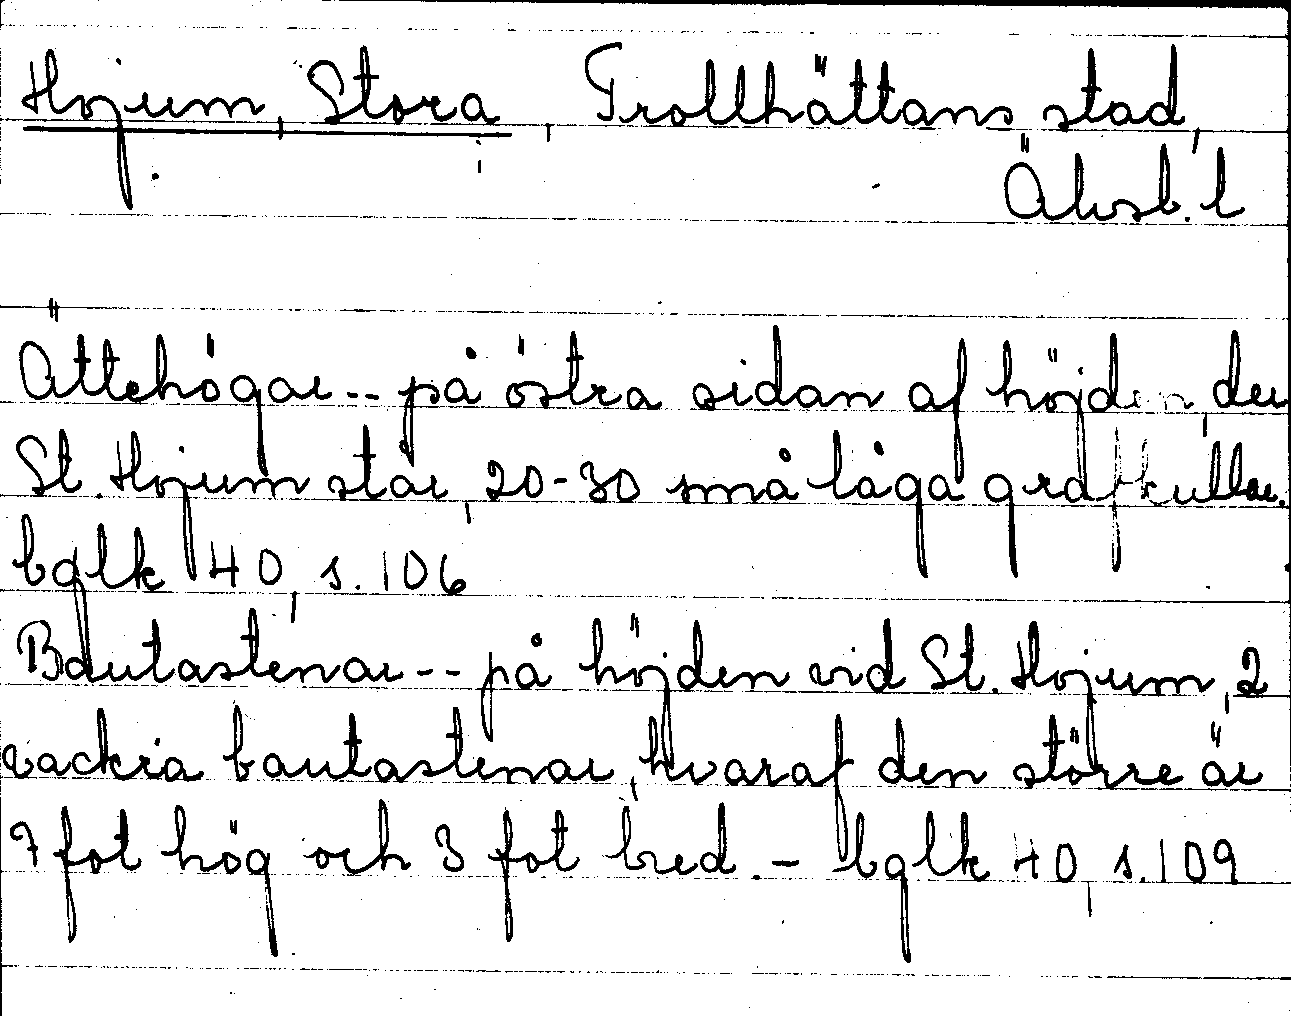 Hojum, Stora, Trollhättans stad,
Älvsb. l
Ättehögar -- på östra sidan af höjden, der
St. Hojum står, 20-30 små låga grafkullar.
bglk 40, s. 106
Bautastenar -- på höjden vid St. Hojum, 2
vackra bautastenar, hvaraf den större är
7 fot hög och 3 fot bred. - bglk 40, s. 109